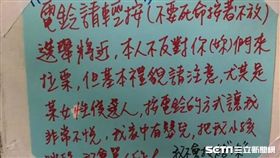 電鈴請輕按(不要死命按著不放)
選舉將近，本人不反對你(妳)們來
拉票，但基本禮貌請注意，尤其是
某女性候選人，按電鈴的方式讓我
非常不悅，我家中有嬰兒，把我小孩
SETN
三立新聞網